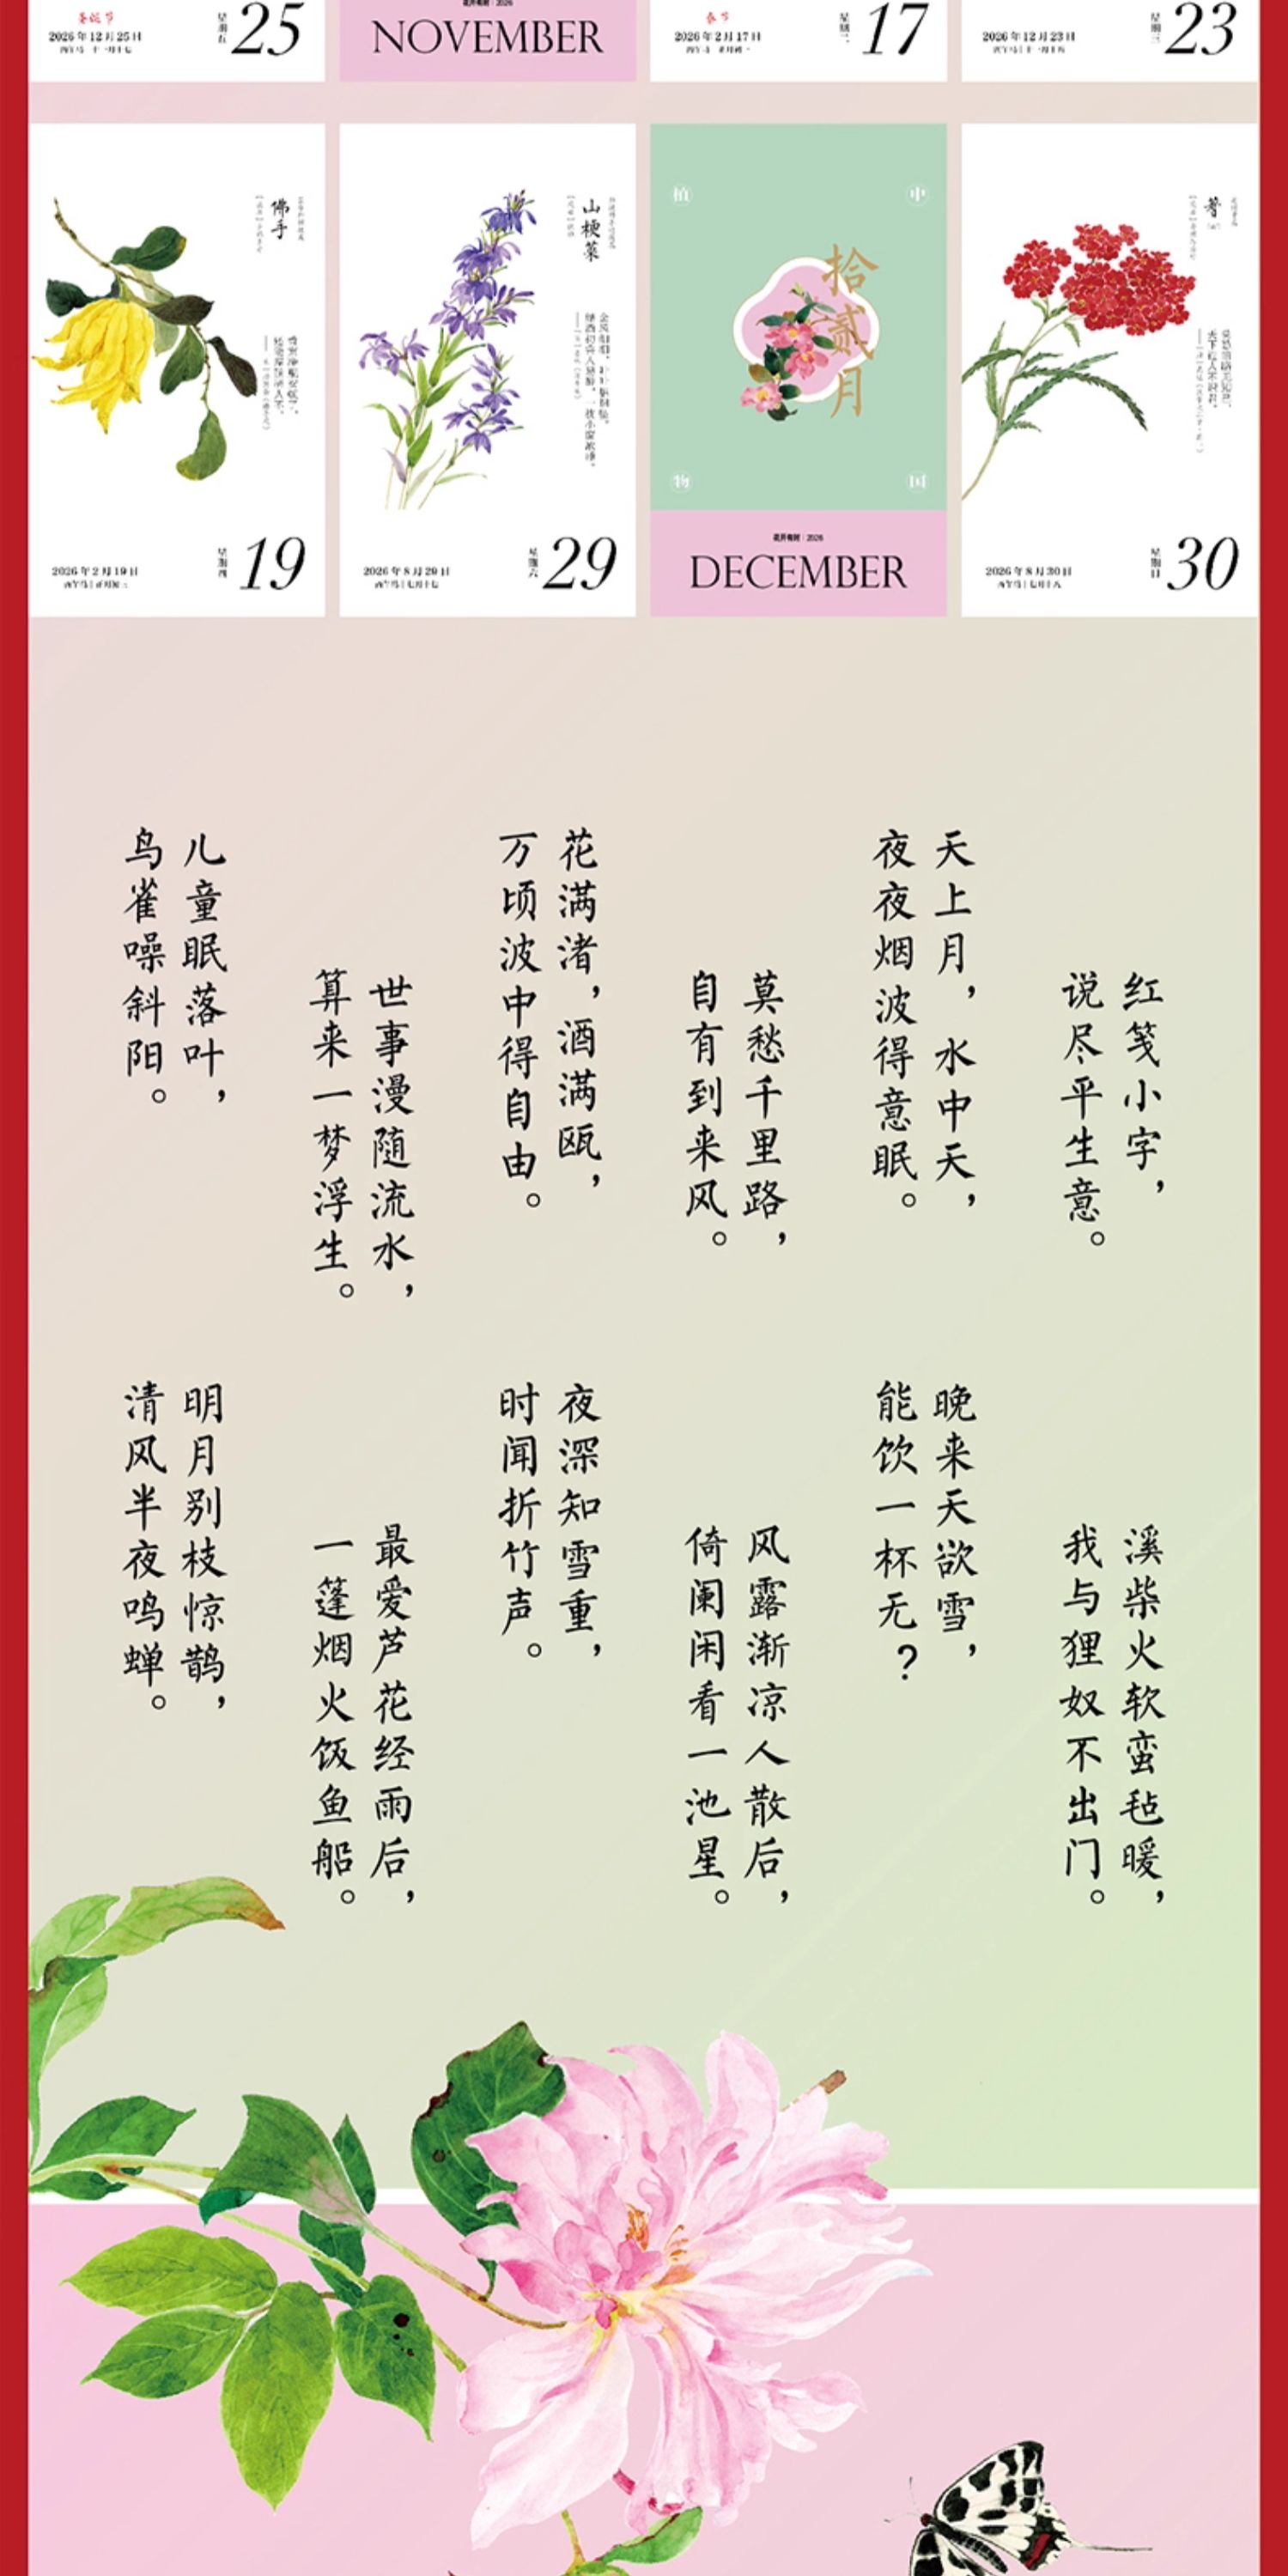 圣诞节
2026年12月25日
星期五
25
花开有时 | 2026
NOVEMBER
春节
2026年2月17日
星期二
17
2026年12月23日
星期三
23
佛手
2026年2月19日
星期四
19
山梗菜
2026年8月29日
星期六
29
中
国
植
物
拾贰月
花开有时 | 2026
DECEMBER
蓍
2026年8月30日
星期日
30
红笺小字，
说尽平生意。
天上月，水中天，
夜夜烟波得意眠。
莫愁千里路，
自有到来风。
花满渚，酒满瓯，
万顷波中得自由。
世事漫随流水，
算来一梦浮生。
儿童眠落叶，
鸟雀噪斜阳。
溪柴火软蛮毡暖，
我与狸奴不出门。
晚来天欲雪，
能饮一杯无？
风露渐凉人散后，
倚阑闲看一池星。
夜深知雪重，
时闻折竹声。
最爱芦花经雨后，
一篷烟火饭鱼船。
明月别枝惊鹊，
清风半夜鸣蝉。